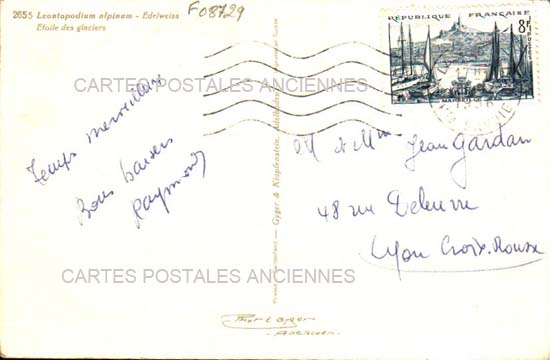 2655 Leontopodium alpinum - Edelweiss
Etoile des glaciers
F08729
RÉPUBLIQUE FRANÇAISE
8F
CARTES POSTALES ANCIENNES
Temps merveilleux
Bons baisers
Raymond
M et Mme Jean Gardan
48 rue Deleuvre
Lyon Croix-Rousse
Gyger & Klopfenstein, Adelboden
CARTES POSTALES ANCIENNES
Adelboden